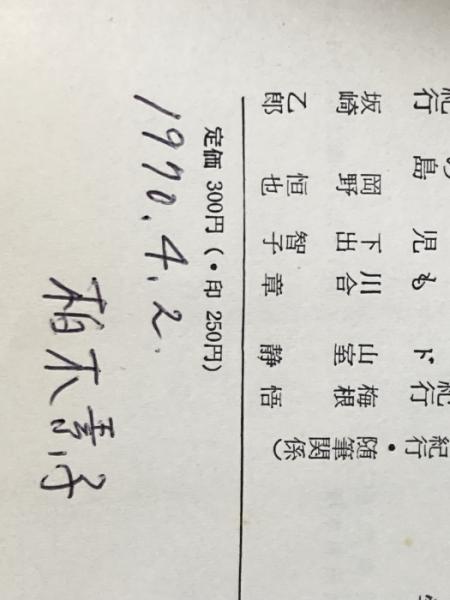 紀行・随筆関係)
紀行 梅根 悟
ド 山室 静
も 川合 章
児 下出 智子
島 岡野 恒也
紀行 坂崎 乙郎
定価 300円 (・印 250円)
1970.4.2.
柏木